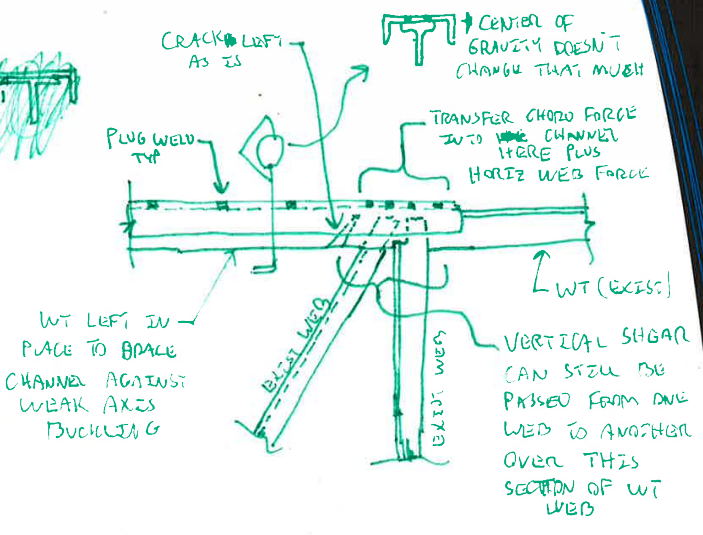 CRACK LEFT
AS IS
CENTER OF
GRAVITY DOESN'T
CHANGE THAT MUCH
PLUG WELD
TYP
TRANSFER CHORD FORCE
INTO CHANNEL
HERE PLUS
HORIZ WEB FORCE
WT (EXIST)
WT LEFT IN
PLACE TO BRACE
CHANNEL AGAINST
WEAK AXIS
BUCKLING
EXIST WEB
EXIST WEB
VERTICAL SHEAR
CAN STILL BE
PASSED FROM ONE
WEB TO ANOTHER
OVER THIS
SECTION OF WT
WEB